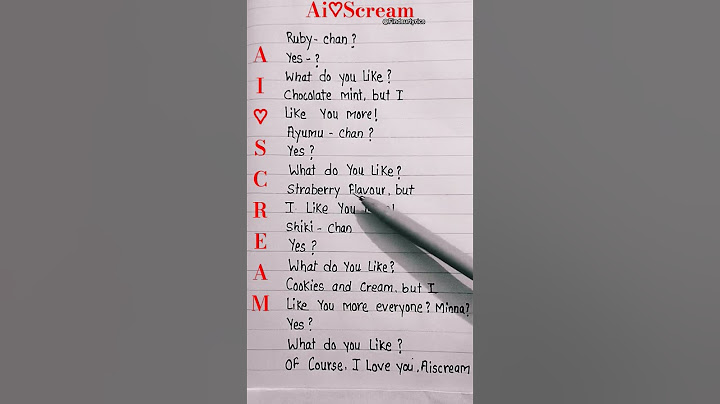 Ai♡Scream
@Findourlyrics
A
I
♡
S
C
R
E
A
M
Ruby-chan?
Yes-?
What do you Like?
Chocolate mint, but I
Like You more!
Ayumu-chan?
Yes?
What do You Like?
Straberry flavour, but
I Like You
Shiki-Chan
Yes?
What do You Like?
Cookies and Cream, but I
Like You more everyone? Minna?
Yes?
What do you Like?
Of Course, I Love you, Aiscream